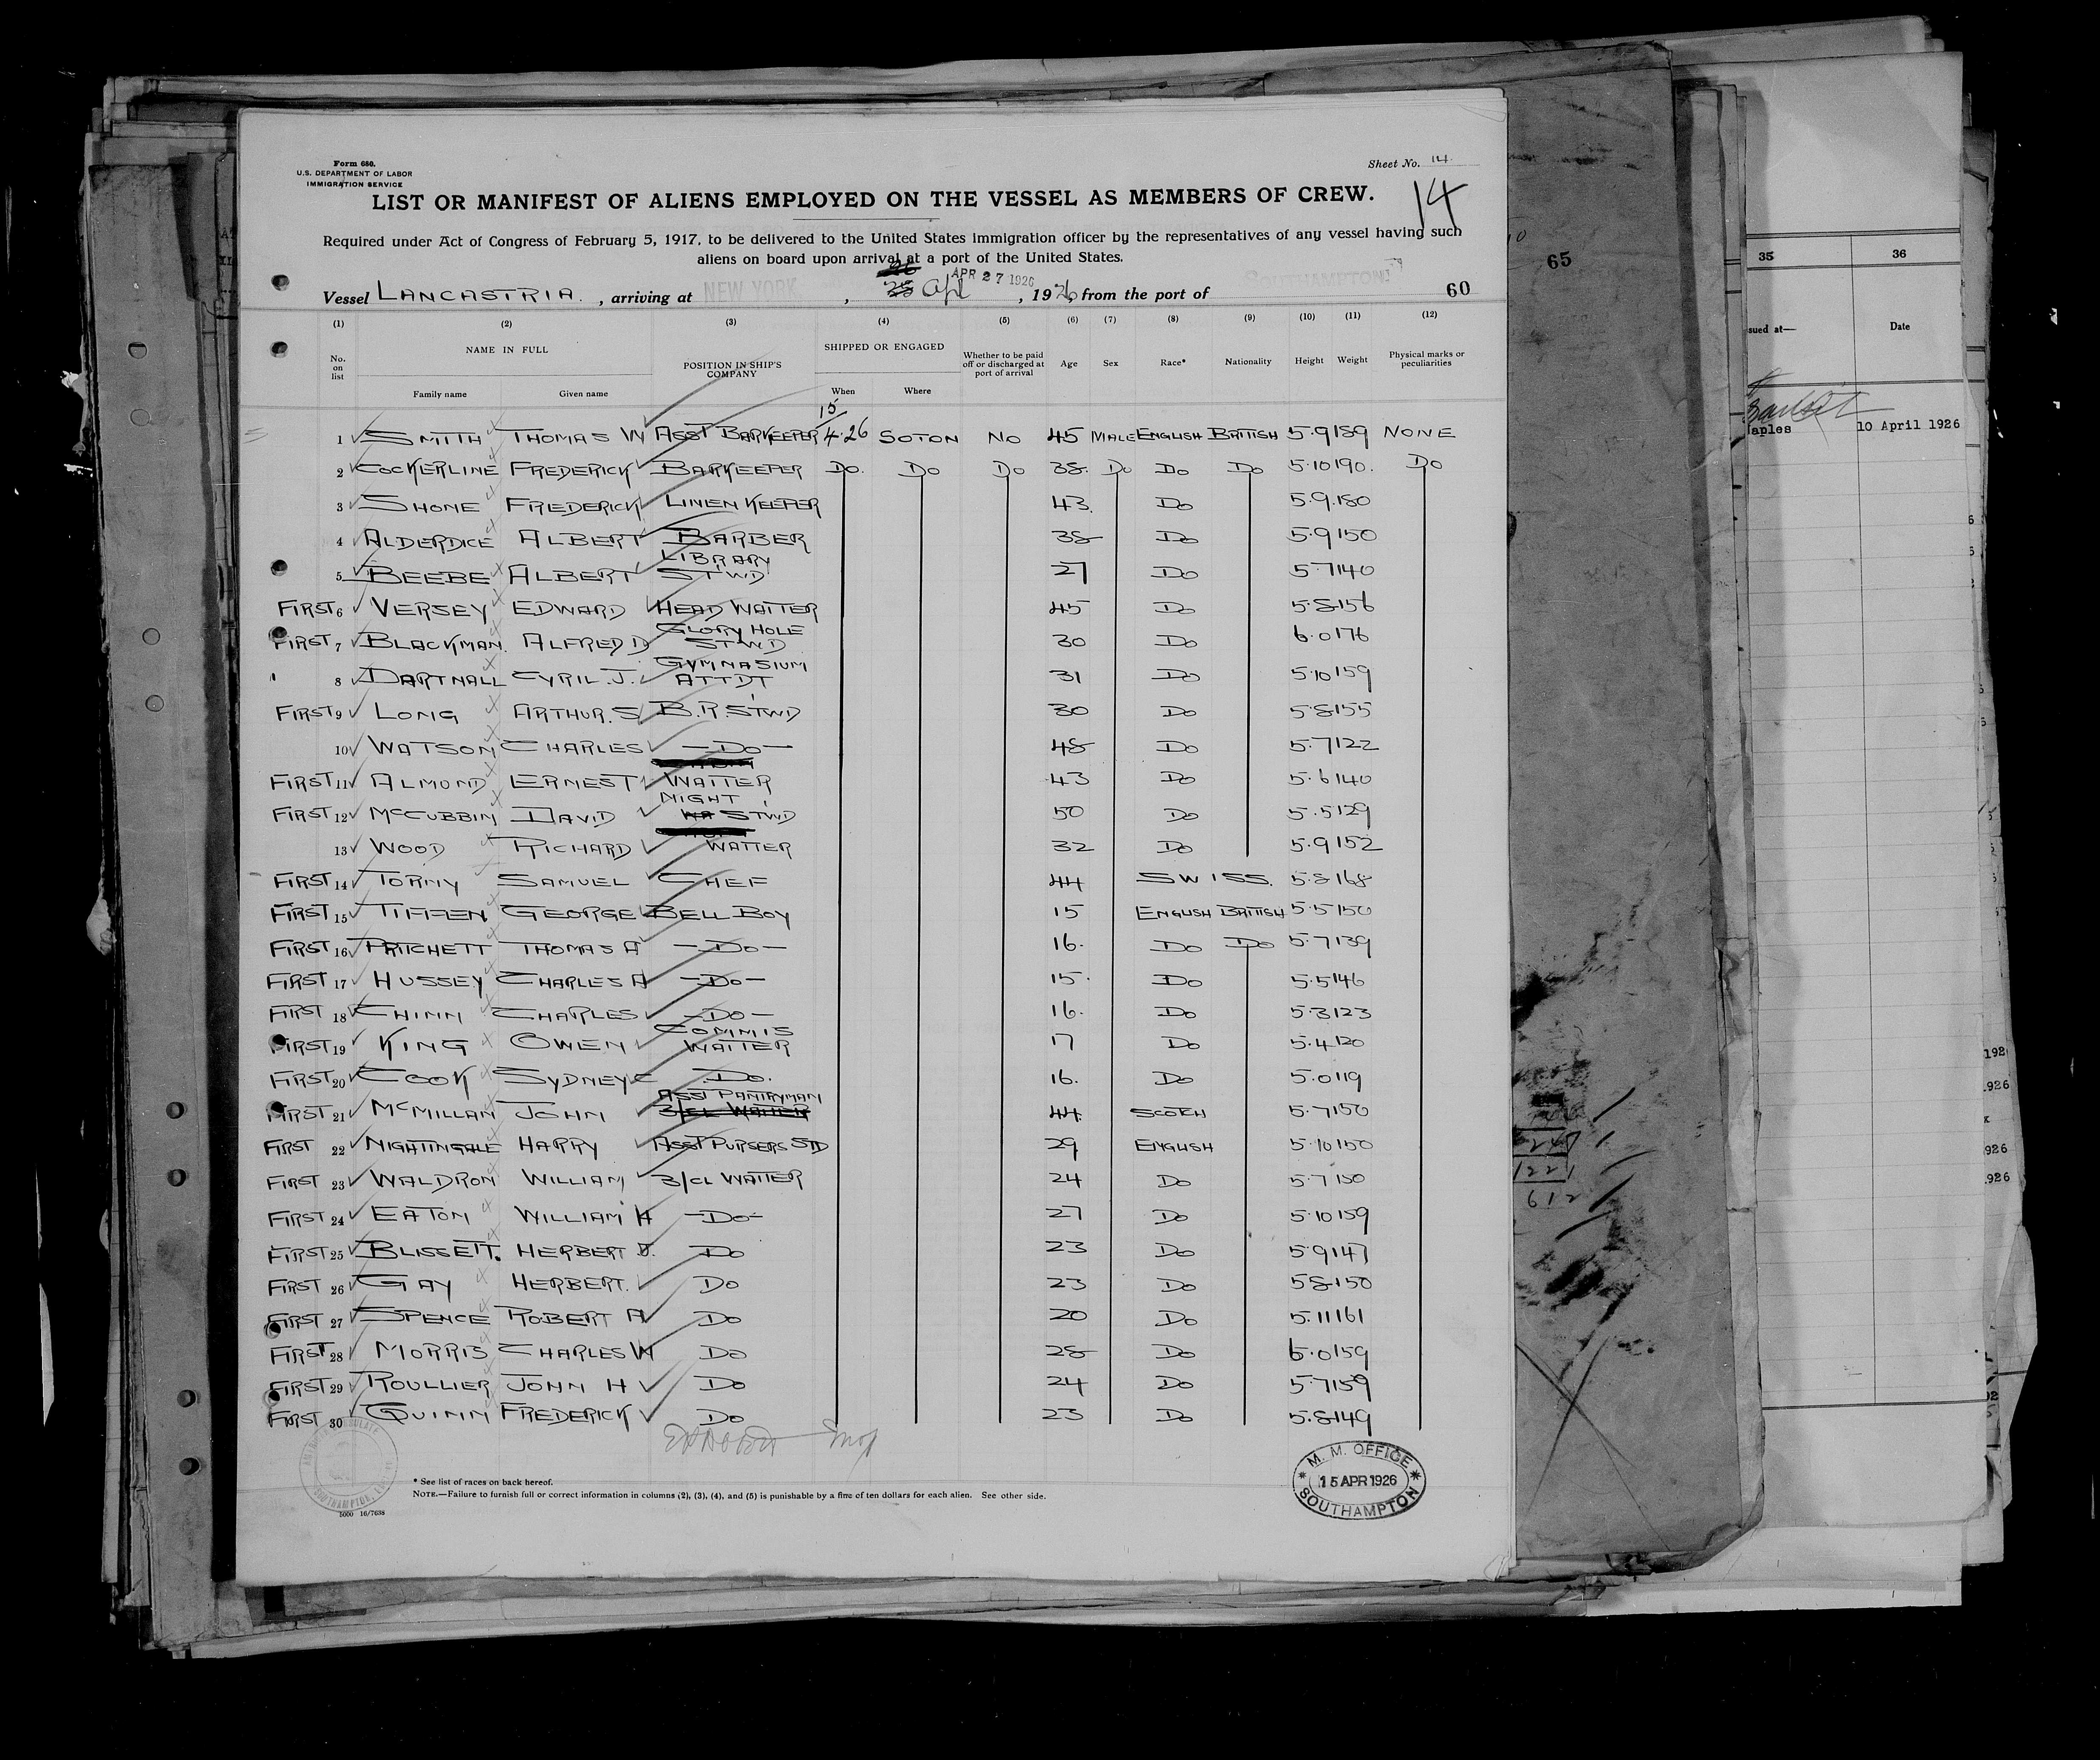 Form 680.
U.S. DEPARTMENT OF LABOR
IMMIGRATION SERVICE
Sheet No. 14
14
LIST OR MANIFEST OF ALIENS EMPLOYED ON THE VESSEL AS MEMBERS OF CREW.
Required under Act of Congress of February 5, 1917, to be delivered to the United States immigration officer by the representatives of any vessel having such
aliens on board upon arrival at a port of the United States.
APR 27 1926
Vessel LANCASTRIA , arriving at NEW YORK , Apl , 1926, from the port of SOUTHAMPTON 60
65
(1) (2) (3) (4) (5) (6) (7) (8) (9) (10) (11) (12)
No. on list
NAME IN FULL
Family name Given name
POSITION IN SHIP'S COMPANY
SHIPPED OR ENGAGED
When Where
Whether to be paid off or discharged at port of arrival
Age Sex Race* Nationality Height Weight Physical marks or peculiarities
15
1 SMITH THOMAS W ASST BARKEEPER 4.26 SOTON NO 45 MALE ENGLISH BRITISH 5.9 189 NONE
2 COCKERLINE FREDERICK BARKEEPER DO. DO DO 38. DO DO DO 5.10 190. DO
3 SHONE FREDERICK LINEN KEEPER 43. DO 5.9. 180
4 ALDERDICE ALBERT BARBER 38 DO 5.9 150
5 BEEBE ALBERT LIBRARY STWD 27 DO 5.7 140
FIRST 6 VERSEY EDWARD HEAD WAITER 45 DO 5.8 156
FIRST 7 BLACKMAN. ALFRED D GLORY HOLE STWD 30 DO 6.0 176
8 DARTNALL CYRIL.J. GYMNASIUM ATTDT 31 DO 5.10 159
FIRST 9 LONG ARTHUR.S B.R.STWD 30 DO 5.8 155
10 WATSON CHARLES -DO- 48 DO 5.7 122
FIRST 11 ALMOND ERNEST WAITER 43 DO 5.6 140
FIRST 12 McCUBBIN DAVID NIGHT STWD 50 DO 5.5 129
13 WOOD RICHARD WAITER 32 DO 5.9 152
FIRST 14 TORNY SAMUEL CHEF 44 SWISS. 5.8 168
FIRST 15 TIFFEN GEORGE BELL BOY 15 ENGLISH BRITISH 5.5 150
FIRST 16 PRITCHETT THOMAS A -DO- 16. DO DO 5.7 139
FIRST 17 HUSSEY CHARLES A -DO- 15. DO 5.5 146
FIRST 18 CHINN CHARLES -DO- 16. DO 5.3 123
FIRST 19 KING OWEN COMMIS WAITER 17 DO 5.4 120
FIRST 20 COOK SYDNEY C DO. 16. DO 5.0 119
FIRST 21 McMILLAN JOHN ASST PANTRYMAN 3/CL WAITER 44. SCOTCH 5.7 150
FIRST 22 NIGHTINGALE HARRY ASST PURSERS STD 29 ENGLISH 5.10 150
FIRST 23 WALDRON WILLIAM 3/CL WAITER 24 DO 5.7 150
FIRST 24 EATON WILLIAM H -DO- 27 DO 5.10 159
FIRST 25 BLISSETT. HERBERT J. DO 23 DO 5.9 147
FIRST 26 GAY HERBERT. DO 23 DO 5.8 150
FIRST 27 SPENCE ROBERT A DO 20 DO 5.11 161
FIRST 28 MORRIS CHARLES W DO 28 DO 6.0 159
FIRST 29 ROULLIER JOHN H DO 24 DO 5.7 159
FIRST 30 QUINN FREDERICK DO 23 DO 5.8 149
* See list of races on back hereof.
NOTE.—Failure to furnish full or correct information in columns (2), (3), (4), and (5) is punishable by a fine of ten dollars for each alien. See other side.
5000 16/7638
M. M. OFFICE
15 APR 1926
SOUTHAMPTON
35 36
sued at— Date
aples 10 April 1926
612